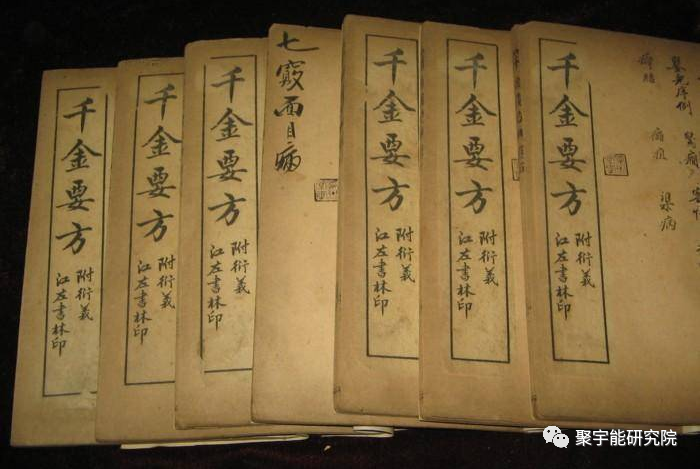 千金要方
附衍義
江左書林印
千金要方
附衍義
江左書林印
千金要方
附衍義
江左書林印
七竅面目病
千金要方
附衍義
江左書林印
千金要方
附衍義
江左書林印
千金要方
附衍義
江左書林印
聚宇能研究院